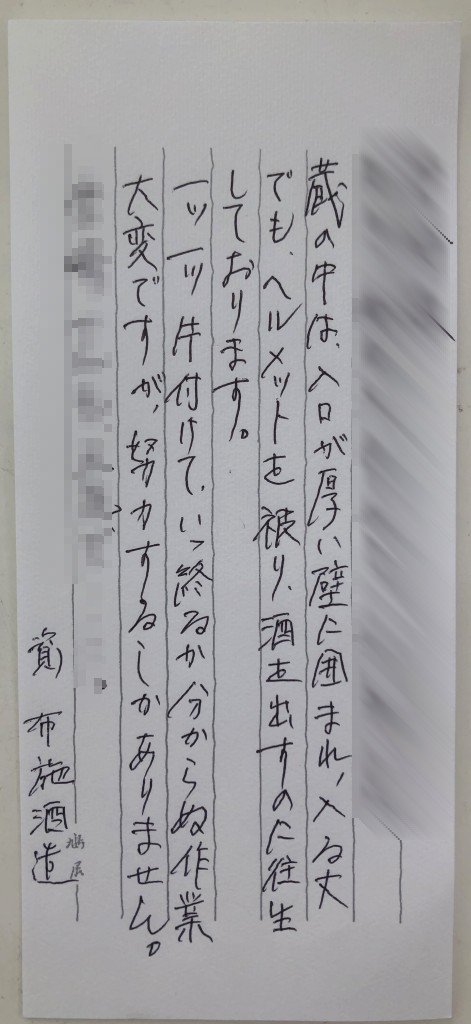 蔵の中は、入口が厚い壁に囲まれ、入る丈
でも、ヘルメットを被り、酒を出すのに往生
しております。
一ツ一ツ片付けて、いつ終るか分からぬ作業
大変ですが、努力するしかありません。
布施酒造